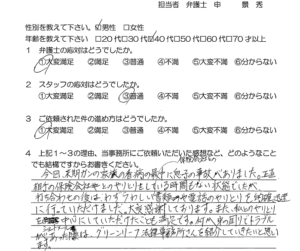 担当者 弁護士 申 景秀
性別を教えて下さい。 ☑男性 □女性
年齢を教えて下さい □20代□30代☑40代□50代□60代□70才以上
1 弁護士の応対はどうでしたか。
①大変満足 ②満足 ③普通 ④不満 ⑤大変不満 ⑥分からない
2 スタッフの応対はどうでしたか。
①大変満足 ②満足 ③普通 ④不満 ⑤大変不満 ⑥分からない
3 ご依頼された件の進め方はどうでしたか。
①大変満足 ②満足 ③普通 ④不満 ⑤大変不満 ⑥分からない
4 上記1~3の理由、当事務所にご依頼いただいた感想など、どのようなこと
でも結構ですからお書きください。
今回、末期ガンの家族の看病の最中に 事故がありました。
相手の保険会社 とのやりとりをしている時間もない状態でしたが、
打ち合わせの後は、わずらわしい のやりとりを
に行っていただけました。大変感謝しております。また、 のやりとり
を 中心にしていただけたことも満足です。 身の回りでトラブル
があった際は、グリーンリーフ法律事務所さんを紹介していきたいと思い
ます。